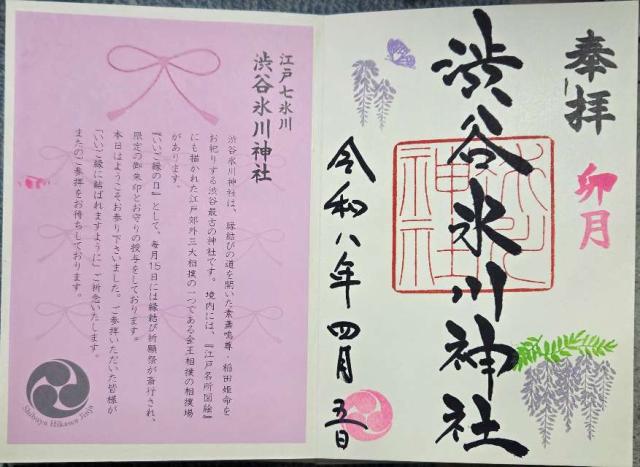 奉拝
卯月
渋谷氷川神社
氷川神社
令和八年四月五日
江戸七氷川
渋谷氷川神社
渋谷氷川神社は、縁結びの道を開いた素盞鳴尊・稲田姫命を
お祀りする渋谷最古の神社です。境内には、『江戸名所図絵』
にも描かれた江戸郊外三大相撲の一つである金王相撲の相撲場
があります。
『いいご縁の日』として、毎月15日には縁結び祈願祭が斎行され、
限定の御朱印とお守りの授与をしております。
本日はようこそお参り下さいました。ご参拝いただいた皆様が
「いいご縁に結ばれますように」ご祈念いたします。
またのご参拝をお待ちしております。
Shibuya Hikawa Jinja